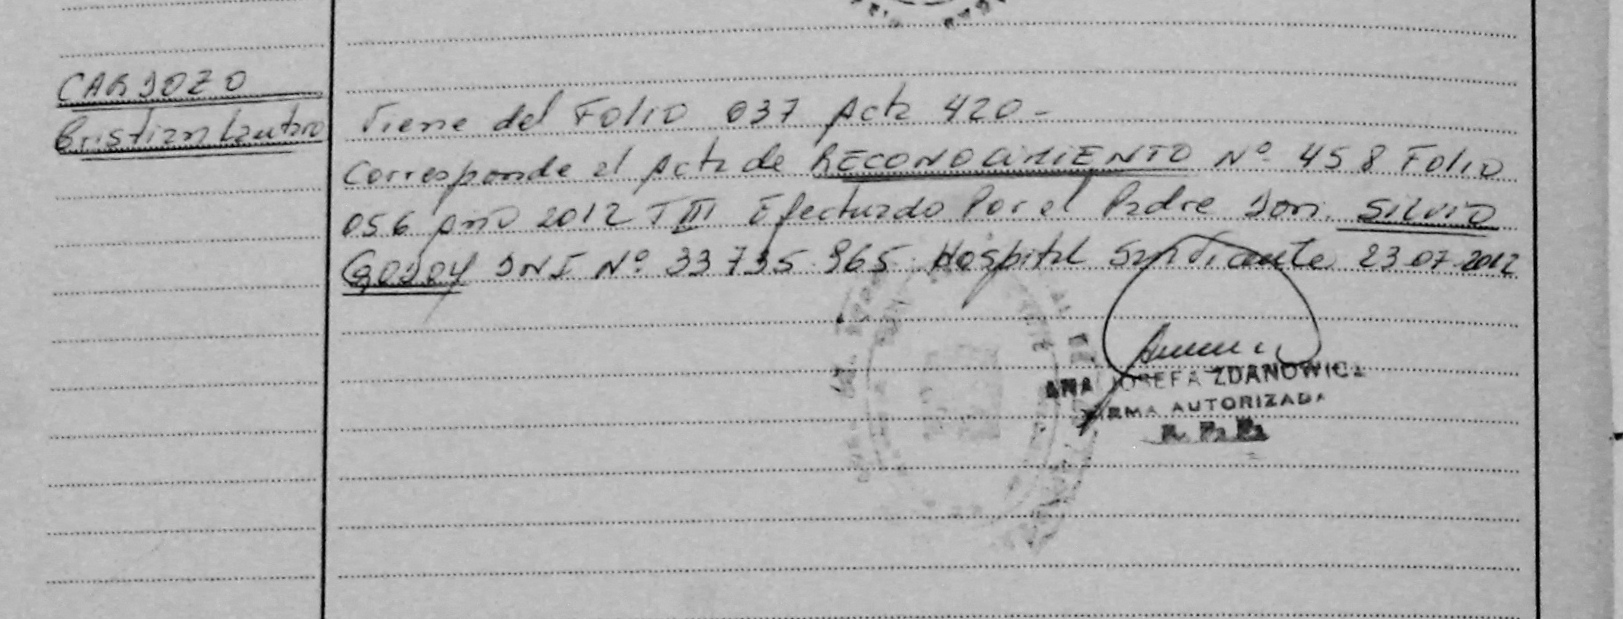 CARDOZO
Cristian Lautaro
Viene del Folio 037 Acta 420 -
Corresponde el Acta de RECONOCIMIENTO Nº 458 Folio
056 Año 2012 T III Efectuado Por el Padre Don. SILVIO
GODOY DNI Nº 33 735 965. Hospital San Vicente 23.07.2012
ANA JOSEFA ZDANOWICZ
FIRMA AUTORIZADA